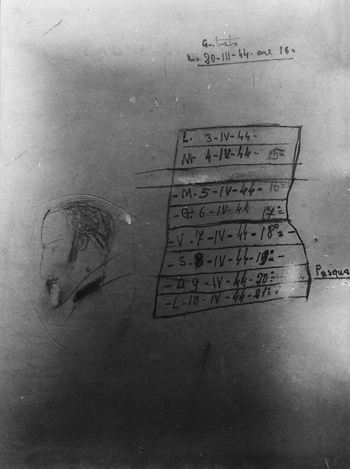 Entrato
20-III-44 ore 16=
L. 3-IV-44-
M. 4-IV-44- 15=
- M. 5-IV-44- 16=
- G. 6-IV-44 17=
- V. 7-IV-44-18º-
- S. 8-IV-44-19=-
- D. 9-IV-44-20=-
- L. 10-IV-44-21=-
Pasqua